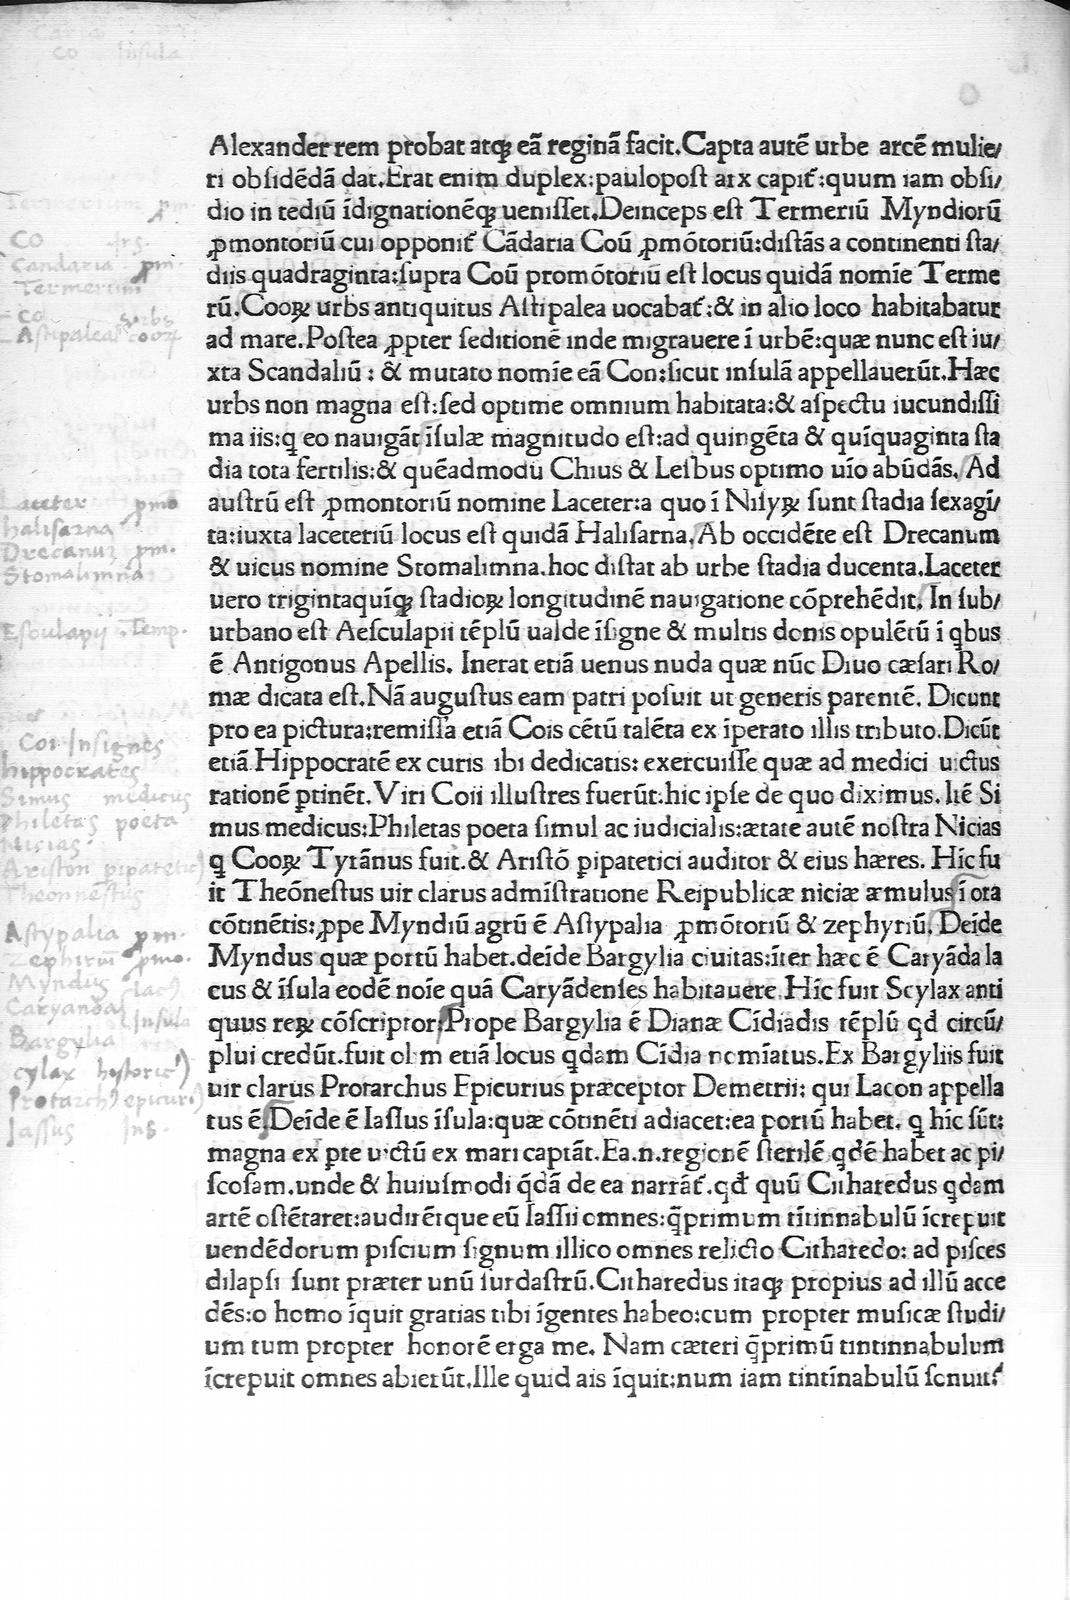 Caria
Co Insula
Alexander rem probat atqꝫ eā reginā facit. Capta autē urbe arcē mulie/
ri obsidēdā dat. Erat enim duplex: paulopost arx capit᷑: quum iam obsi/
dio in tediū īdignationēqꝫ uenisset. Deinceps est Termeriū Myndiorū
ꝓmontoriū cui opponit᷑ Cādaria Coū ꝓmōtoriū: distās a continenti sta/
diis quadraginta: supra Coū promōtoriū est locus quidā nomīe Terme
rū. Cooꝝ urbs antiquitus Astipalea uocabat᷑: & in alio loco habitabatur
ad mare. Postea ꝓpter seditionē inde migrauere ī urbē: quæ nunc est iu/
xta Scandaliū: & mutato nomīe eā Con: sicut insulā appellauerūt. Hæc
urbs non magna est: sed optime omnium habitata: & aspectu iucundissi
ma iis: q eo nauigāt īsulæ magnitudo est: ad quingēta & quīquaginta sta
dia tota fertilis: & quēadmodū Chius & Lesbus optimo uīo abūdās. Ad
austrū est ꝓmontoriū nomine Laceter: a quo ī Nisyꝝ sunt stadia sexagī/
ta: iuxta laceteriū locus est quidā Halisarna. Ab occidēte est Drecanum
& uicus nomine Stomalimna. hoc distat ab urbe stadia ducenta. Laceter
uero trigintaquīqꝫ stadioꝝ longitudinē nauigatione cōprehēdit. In sub/
urbano est Aesculapii tēplū ualde īsigne & multis donis opulētū ī qbus
ē Antigonus Apellis. Inerat etiā uenus nuda quæ nūc Diuo cæsari Ro/
mæ dicata est. Nā augustus eam patri posuit ut generis parentē. Dicunt
pro ea pictura: remissa etiā Cois cētū talēta ex īperato illis tributo. Dicūt
etiā Hippocratē ex curis ibi dedicatis: exercuisse quæ ad medici uictus
rationē ꝑtinēt. Viri Coii illustres fuerūt: hic ipse de quo diximus. Itē Si
mus medicus: Philetas poeta simul ac iudicialis: ætate autē nostra Nicias
q Cooꝝ Tyrānus fuit. & Aristō ꝑipatetici auditor & eius hæres. Hīc fu
it Theōnestus uir clarus admīstratione Reipublicæ niciæ æmulus ī ora
cōtinētis: ꝓpe Myndiū agrū ē Astypalia ꝓmōtoriū & zephyriū. Deīde
Myndus quæ portū habet. deīde Bargylia ciuitas: īter hæc ē Caryāda la
cus & īsula eodē noīe quā Caryādenses habitauere. Hīc fuit Scylax anti
quus reꝝ cōscriptor: Prope Bargylia ē Dianæ Cīdiadis tēplū qd̄ circū/
plui credūt. fuit olim etiā locus qdam Cīdia nomīatus. Ex Bargyliis fuit
uir clarus Protarchus Epicurius præceptor Demetrii: qui Lacon appella
tus ē. Deīde ē Iassus īsula: quæ cōtinēti adiacet: ea portū habet. q hīc sūt:
magna ex ꝑte uictū ex mari captāt. Ea .n. regionē sterilē qdē habet ac pi/
scosam. unde & huiusmodi q̄dā de ea narrāt᷑. qd̄ quū Citharedus qdam
artē ostētaret: audirētque eū Iassii omnes: q̄primum tītinnabulū īcrepuit
uendēdorum piscium signum illico omnes relicto Citharedo: ad pisces
dilapsi sunt præter unū surdastrū. Citharedus itaqꝫ propius ad illū acce
dēs: o homo īquit gratias tibi īgentes habeo: cum propter musicæ studi/
um tum propter honorē erga me. Nam cæteri q̄primū tintinnabulum
īcrepuit omnes abierūt. Ille quid ais īquit: num iam tintīnabulū sonuit?
Termerium pm.
Co Ins.
Candaria pm.
Termerum
Co urbs
Astipalea cooꝝ
Laceter pmo
halisarna
Drecanum pm.
Stomalimna
Esculapij Temp.
Coi Insignes
hippocrates
Simus medicus
Philetas poeta
Nicias.
Ariston pipatetic)
Theonnestus
Astypalia pm.
Zephirium pmo.
Myndus
Caryanda lac9
Insula
Bargylia
cylax historic)
Protarch9 epicuri)
Iassus Ins.